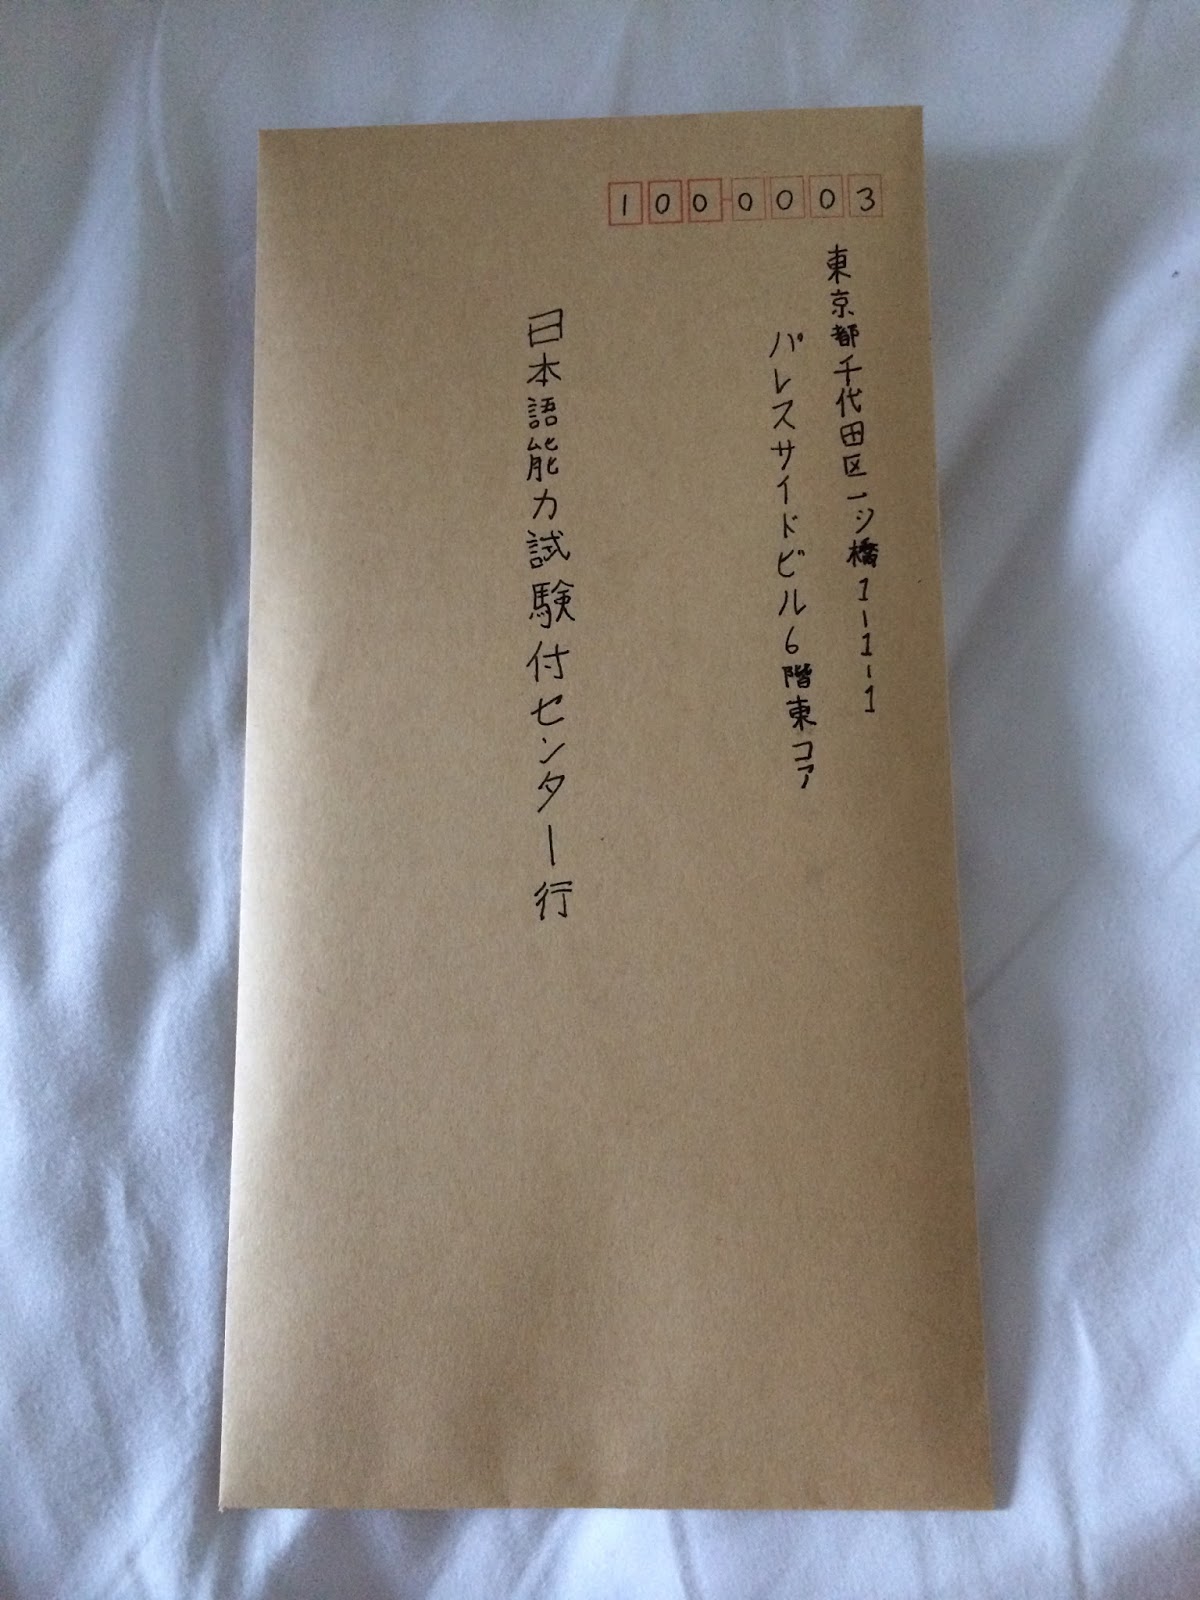 100-0003
東京都千代田区一ツ橋1-1-1
パレスサイドビル6階東コア
日本語能力試験付センター行